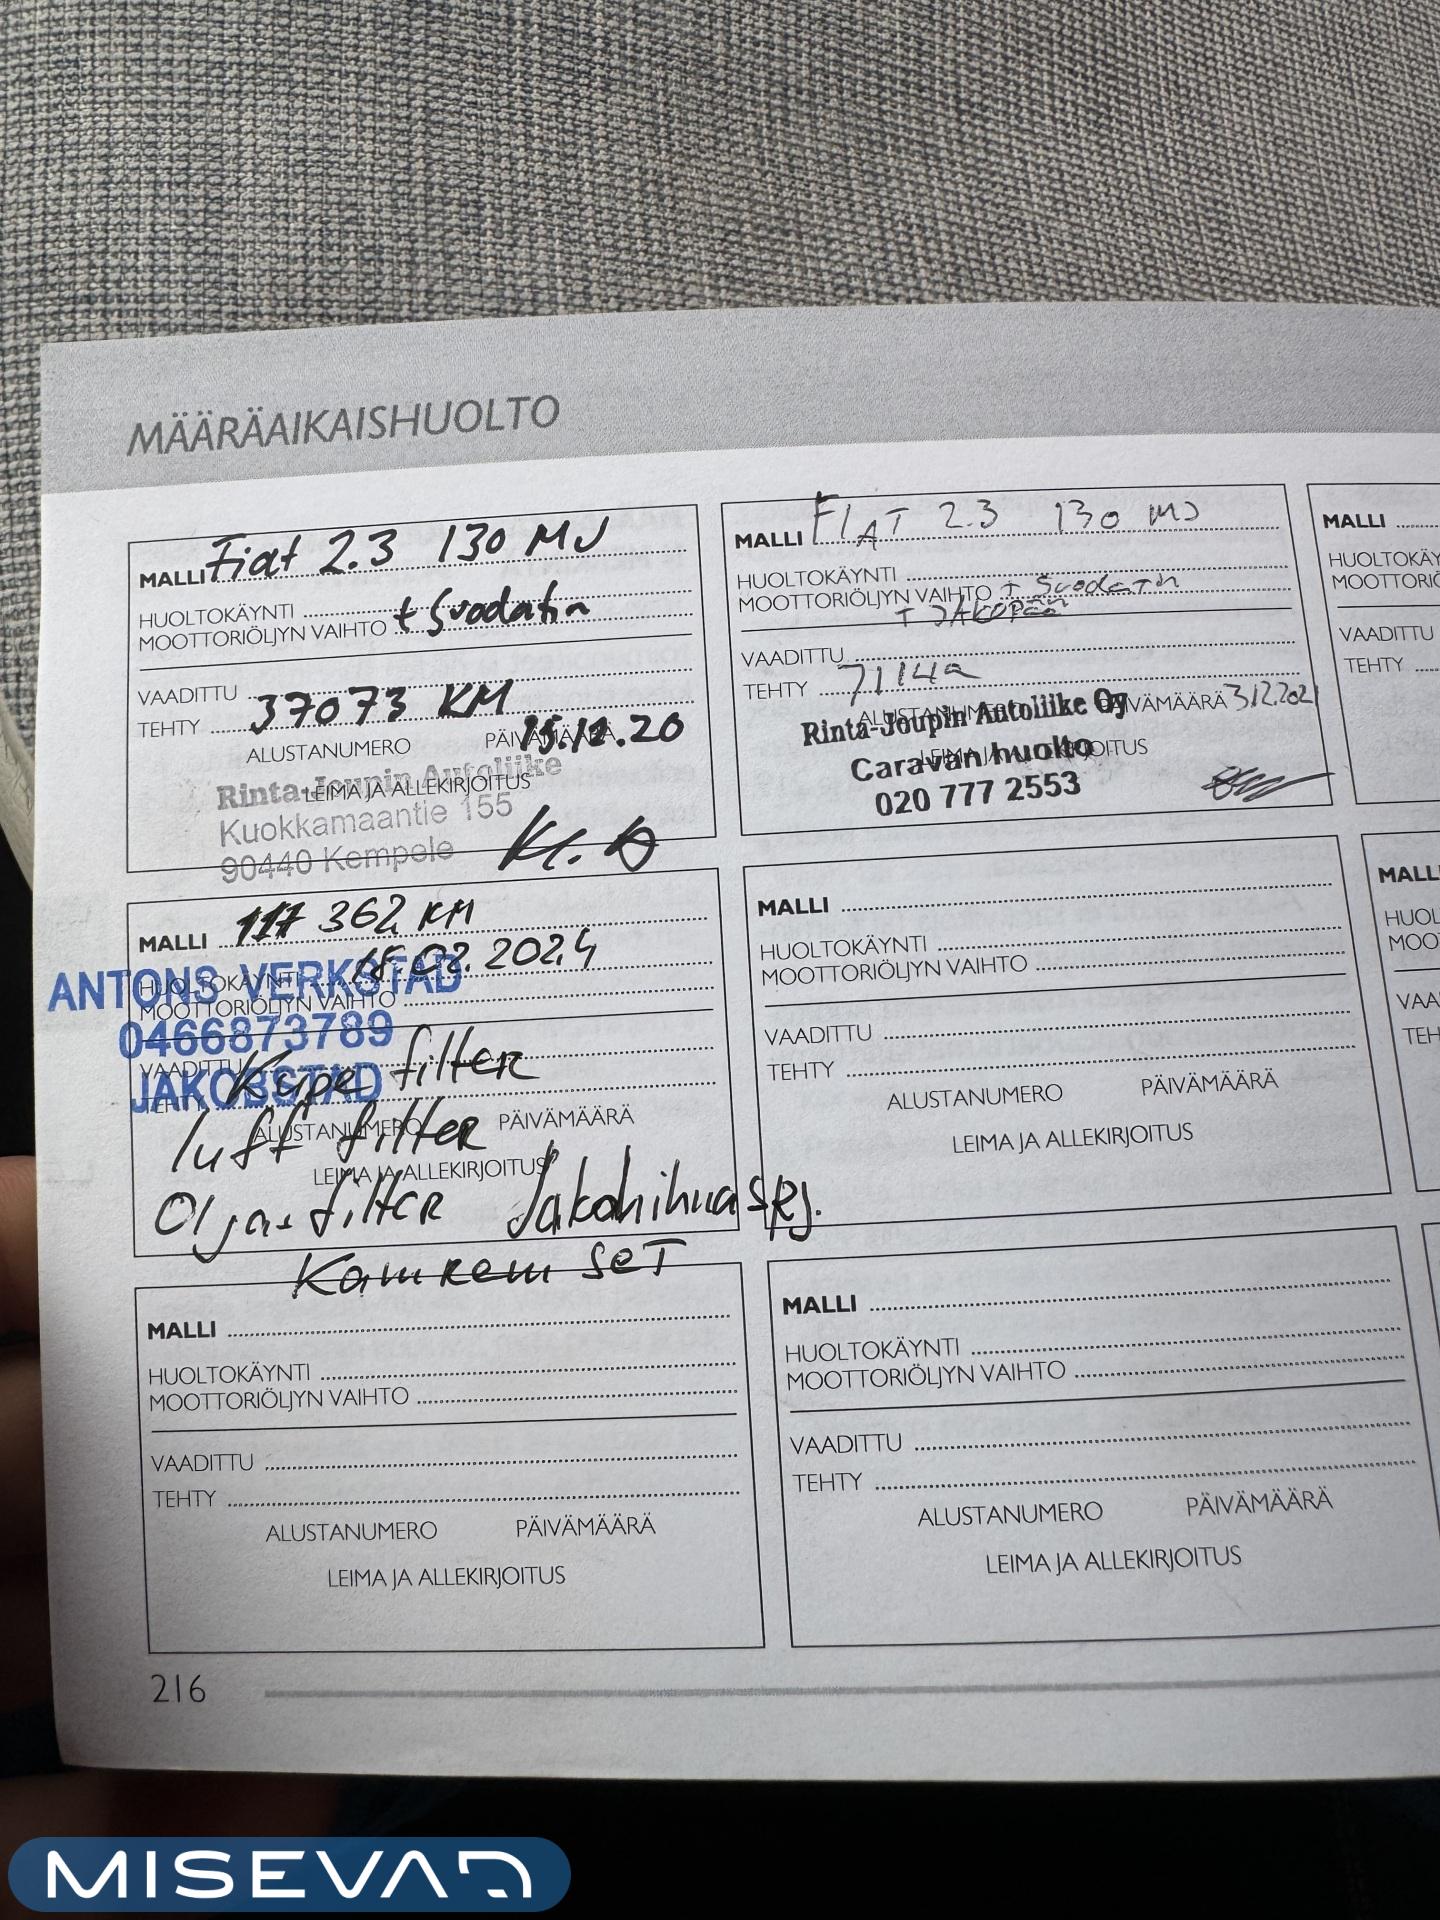 MÄÄRÄAIKAISHUOLTO
MALLI Fiat 2.3 130 MJ
HUOLTOKÄYNTI
MOOTTORIÖLJYN VAIHTO + Suodatin
VAADITTU
TEHTY 37073 KM
ALUSTANUMERO PÄIVÄMÄÄRÄ 15.12.20
LEIMA JA ALLEKIRJOITUS
Rinta-Joupin Autoliike
Kuokkamaantie 155
90440 Kempele
MALLI FIAT 2.3 130 MJ
HUOLTOKÄYNTI
MOOTTORIÖLJYN VAIHTO + Suodatin
+ JAKOPÄÄ
VAADITTU
TEHTY
ALUSTANUMERO PÄIVÄMÄÄRÄ 3.12.2021
LEIMA JA ALLEKIRJOITUS
Rinta-Joupin Autoliike Oy
Caravan huolto
020 777 2553
MALLI
HUOLTOKÄYNTI
MOOTTORIÖLJYN
VAADITTU
TEHTY
MALLI 117 362 KM
18.02.2024
HUOLTOKÄYNTI
MOOTTORIÖLJYN VAIHTO
VAADITTU
TEHTY
ALUSTANUMERO PÄIVÄMÄÄRÄ
LEIMA JA ALLEKIRJOITUS
ANTONS VERKSTAD
0466873789
JAKOBSTAD
Kupe filter
luft filter
Oljas filter Jakohihna srj.
Kamrem SeT
MALLI
HUOLTOKÄYNTI
MOOTTORIÖLJYN VAIHTO
VAADITTU
TEHTY
ALUSTANUMERO PÄIVÄMÄÄRÄ
LEIMA JA ALLEKIRJOITUS
MALLI
HUOLTOKÄYNTI
MOOTTORIÖLJYN VAIHTO
VAADITTU
TEHTY
ALUSTANUMERO PÄIVÄMÄÄRÄ
LEIMA JA ALLEKIRJOITUS
MALLI
HUOLTOKÄYNTI
MOOTTORIÖLJYN VAIHTO
VAADITTU
TEHTY
ALUSTANUMERO PÄIVÄMÄÄRÄ
LEIMA JA ALLEKIRJOITUS
216
MISEVA